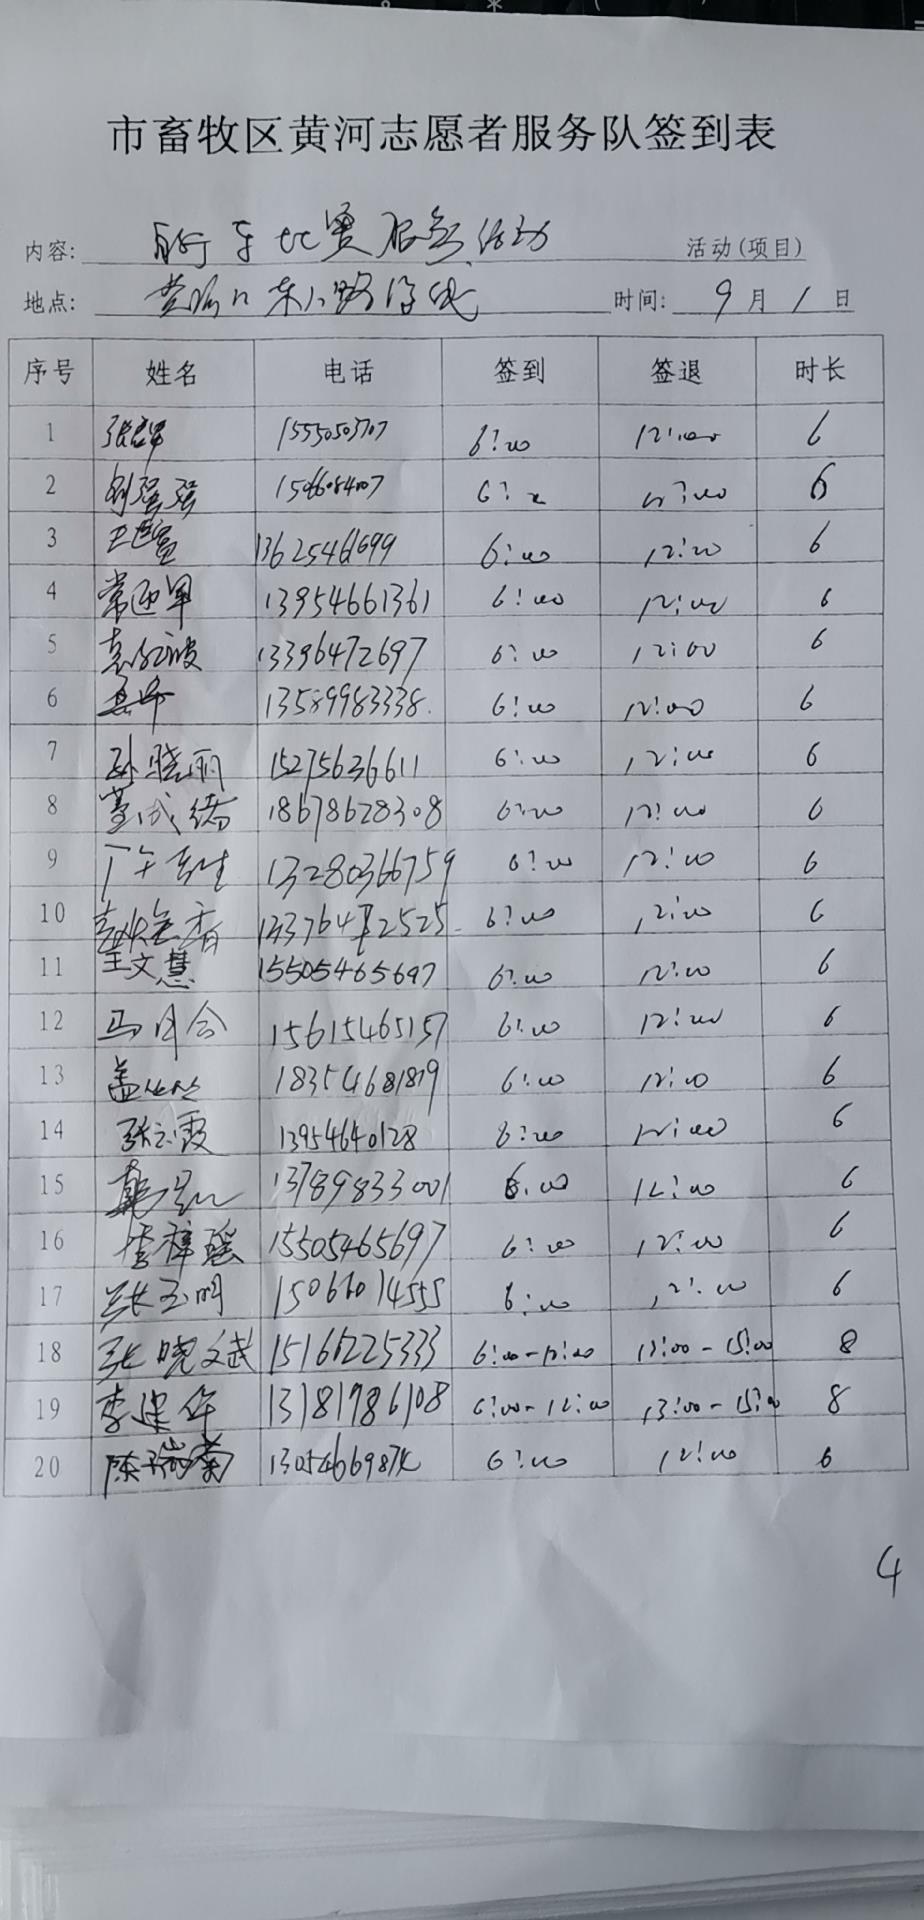 市畜牧区黄河志愿者服务队签到表
内容: 自行车比赛服务活动 活动(项目)
地点: 东八路 时间: 9月1日
序号 姓名 电话 签到 签退 时长
1 15550503707 6:00 12:00 6
2 刘强强 6:00 12:00 6
3 13625461699 6:00 12:00 6
4 常迎军 13954661361 6:00 12:00 6
5 袁红波 13396472697 6:00 12:00 6
6 13589983338 6:00 12:00 6
7 孙晓丽 15275636611 6:00 12:00 6
8 董成绪 18678628308 6:00 12:00 6
9 13280366759 6:00 12:00 6
10 6:00 12:00 6
11 王文慧 15505465697 6:00 12:00 6
12 马月会 15615465157 6:00 12:00 6
13 盖 18354681879 6:00 12:00 6
14 张云霞 13954640128 6:00 12:00 6
15 13789833001 6:00 12:00 6
16 李梓瑶 15505465697 6:00 12:00 6
17 张玉明 15066014555 6:00 12:00 6
18 张晓斌 15166225333 6:00-12:00 13:00-15:00 8
19 李建华 13181986108 6:00-12:00 13:00-15:00 8
20 陈瑞菊 6:00 12:00 6
4